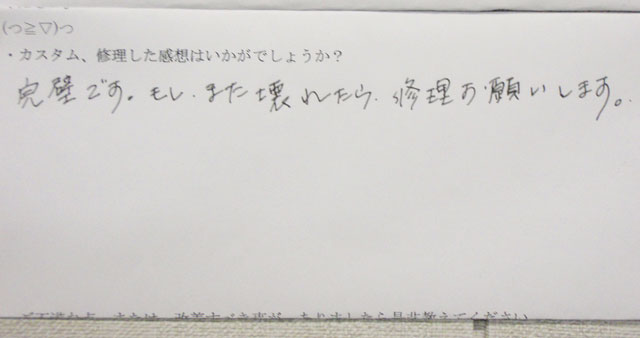 (っ≧▽)っ
・カスタム、修理した感想はいかがでしょうか？
完璧です。もし、また壊れたら、修理お願いします。